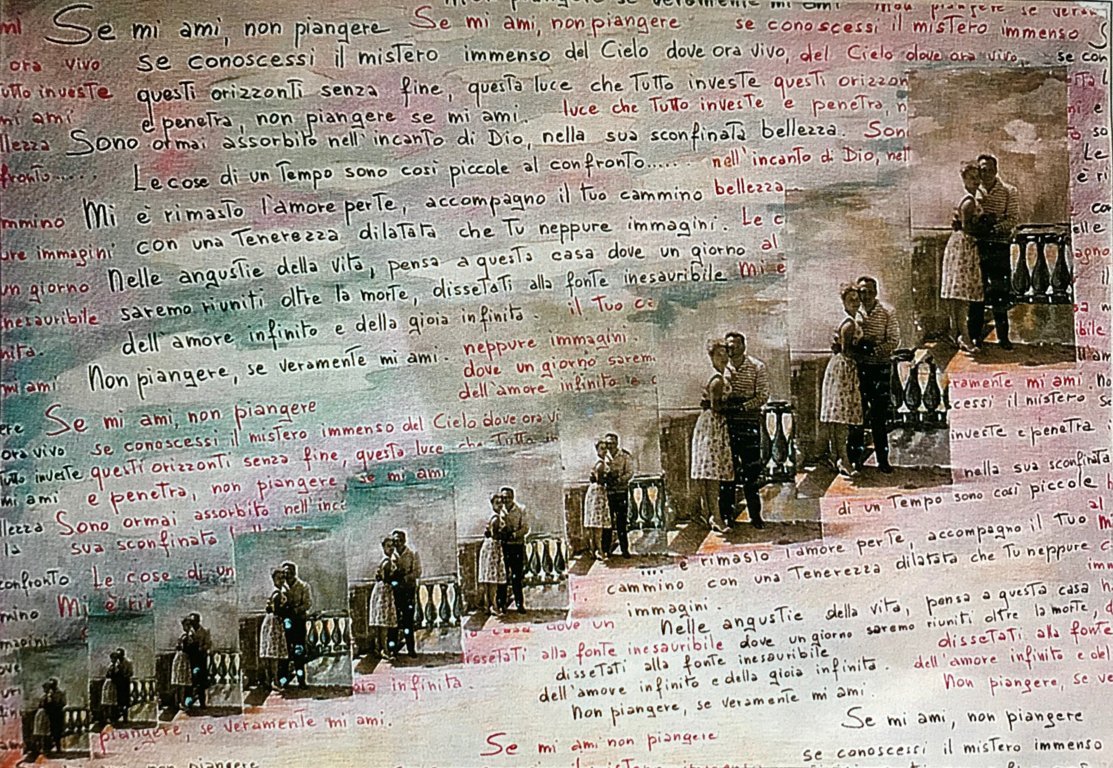 se veramente mi ami non piangere se
mi Se mi ami, non piangere Se mi ami, non piangere se conoscessi il mistero immenso S
ora vivo se conoscessi il mistero immenso del Cielo dove ora vivo, del Cielo dove ora vivo, se con
Tutto investe questi orizzonti senza fine, questa luce che Tutto investe questi orizzon
mi ami e penetra, non piangere se mi ami. luce che Tutto investe e penetra, n
llezza Sono ormai assorbito nell'incanto di Dio, nella sua sconfinata bellezza. Son
fronto..... Le cose di un Tempo sono così piccole al confronto..... nell'incanto di Dio, nell
mmino Mi è rimasto l'amore per te, accompagno il tuo cammino bellezza
ure immagini con una Tenerezza dilatata che Tu neppure immagini. Le c
un giorno Nelle angustie della vita, pensa a questa casa dove un giorno al
inesauribile saremo riuniti oltre la morte, dissetati alla fonte inesauribile Mi è
nita. dell'amore infinito e della gioia infinita. il Tuo c
mi ami Non piangere, se veramente mi ami. neppure immagini.
dove un giorno sarem
dell'amore infinito e
ramente mi ami.
ere Se mi ami, non piangere
cessi il mistero
ora vivo se conoscessi il mistero immenso del Cielo dove ora vi
investe e penetra
Tutto investe questi orizzonti senza fine, questa luce che Tutto in
mi ami e penetra, non piangere se mi ami
nella sua sconfinata
llezza Sono ormai assorbito nell'inc
di un Tempo sono così piccole
la sua sconfinata
confronto Le cose di un
è rimasto l'amore per Te, accompagno il Tuo
mino Mi è ri
cammino con una Tenerezza dilatata che Tu neppure
immagini
immagini. Nelle angustie della vita, pensa a questa casa
casa dove un
dissetati alla fonte inesauribile dove un giorno saremo riuniti oltre la morte,
dissetati alla fonte inesauribile dissetati alla fonte
infinita. dell'amore infinito e della gioia infinita. dell'amore infinito e del
Non piangere, se veramente mi ami. Non piangere, se ve
piangere, se veramente mi ami.
Se mi ami, non piangere
Se mi ami non piangere
se conoscessi il mistero immenso
non piangere